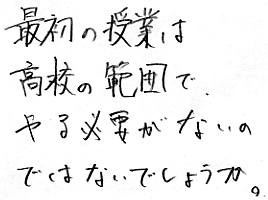 最初の授業は
高校の範囲で、
やる必要がないの
ではないでしょうか。